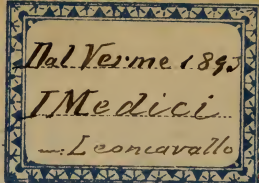 Dal Verme 1893
I Medici
Leoncavallo